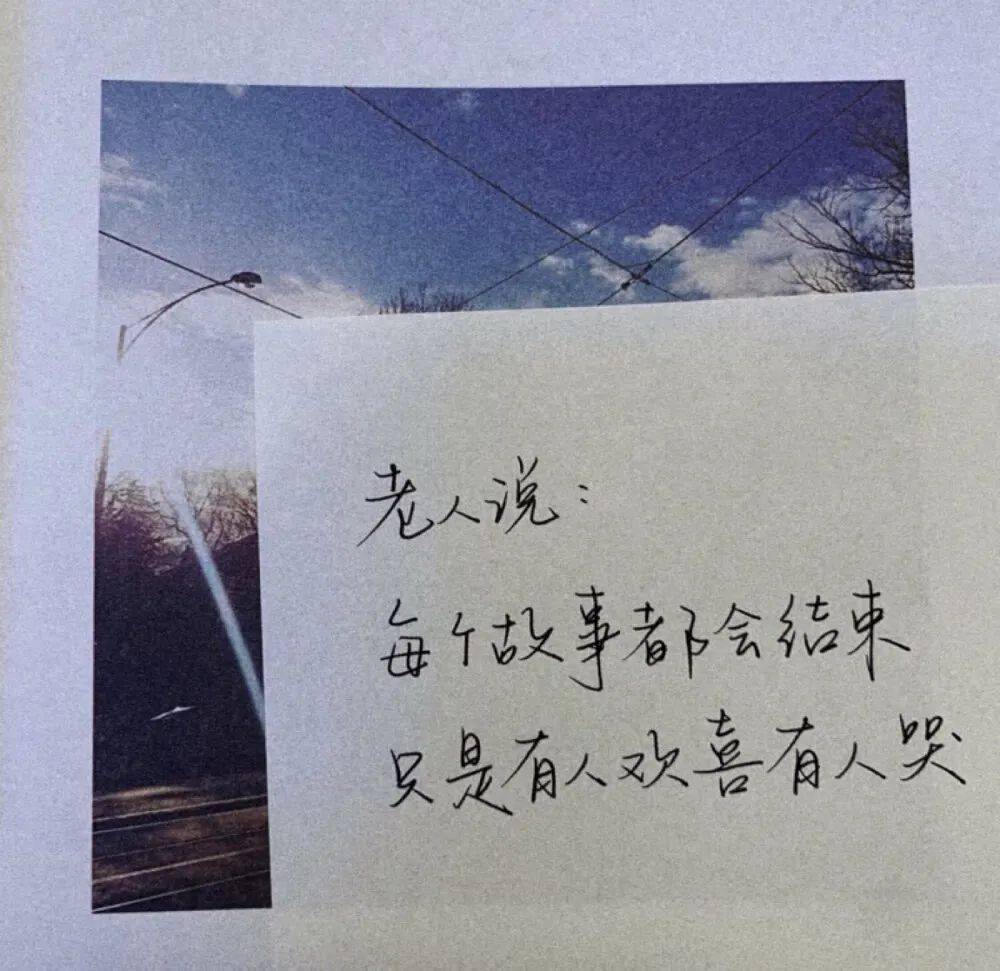 老人说：
每个故事都会结束
只是有人欢喜有人哭